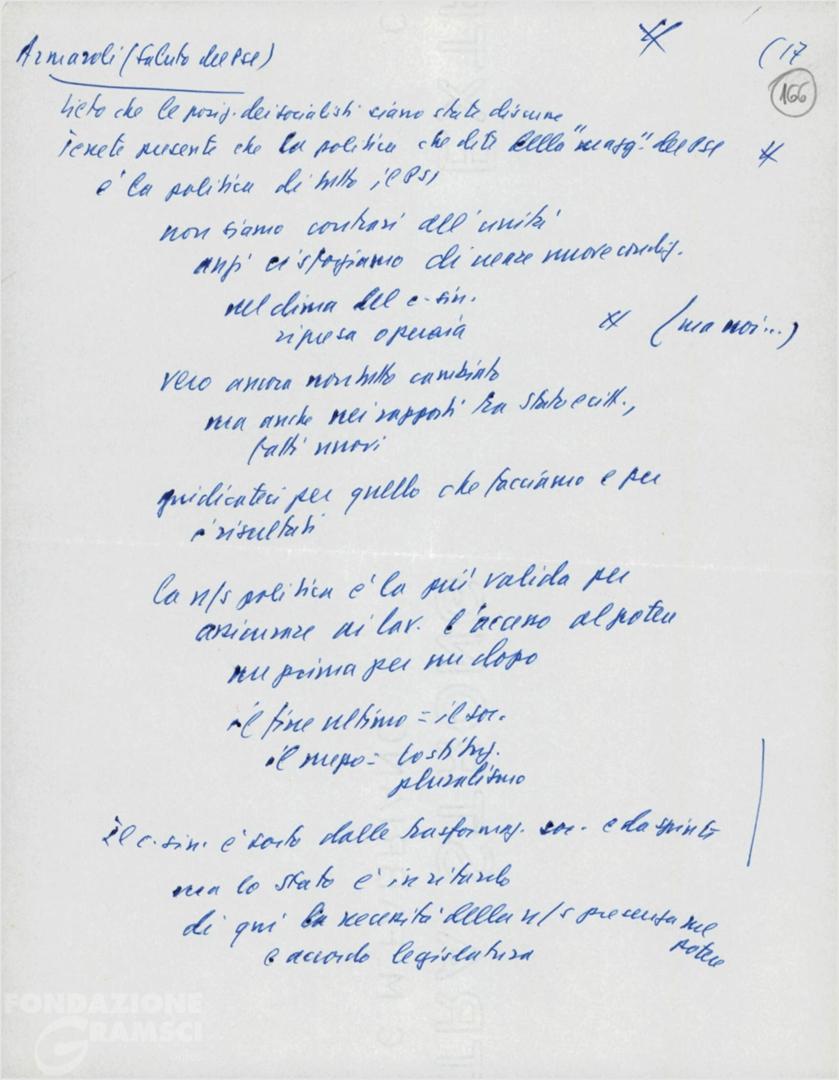 Armaroli (saluto del PSI) # (17
166
lieto che le posiz. dei socialisti siano state discusse
Tenete presente che la politica che dite della "magg." del PSI #
è la politica di tutto il PSI
non siamo contrari all'unità
anzi ci sforziamo di creare nuove condiz.
nel clima del c-sin.
ripresa operaia # (ma noi...)
vero ancora non tutto cambiato
ma anche nei rapporti tra stato e citt.,
fatti nuovi
giudicateci per quello che facciamo e per
i risultati
la n/s politica è la più valida per
assicurare ai lav. l'accesso al potere
nu prima per nu dopo
il fine ultimo = il soc.
il mezzo = Costituz.
pluralismo
Il c-sin. è sorto dalle trasformaz. soc. e da spinte
ma lo stato è in ritardo
di qui la necessità della n/s presenza nel
potere
e accordo legislatura
FONDAZIONE
GRAMSCI